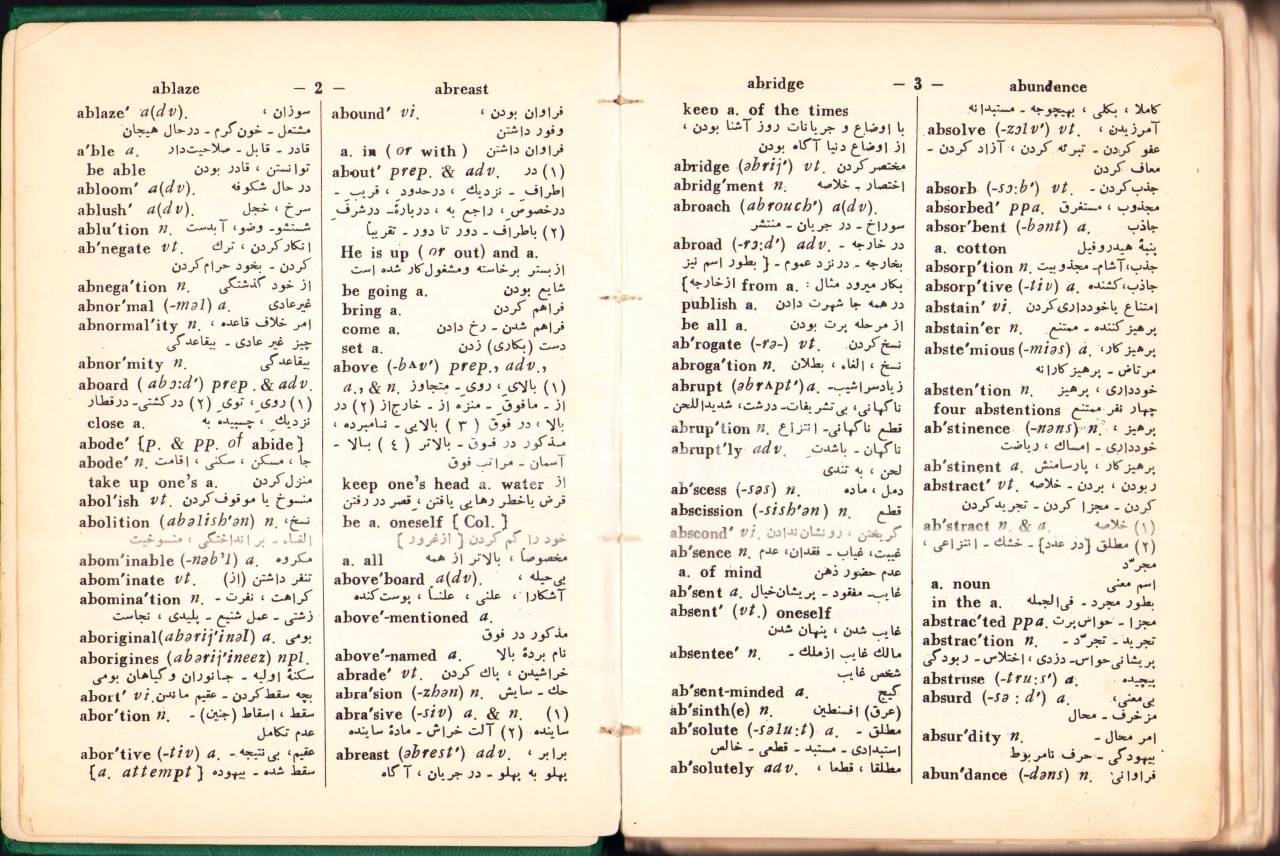 ablaze — 2 — abreast
ablaze′ a(dv). سوزان ،
مشتعل ـ خون گرم ـ درحال هیجان
a′ble a. قادر ـ قابل ـ صلاحیت‌دار
be able توانستن ، قادر بودن
abloom′ a(dv). در حال شکوفه
ablush′ a(dv). سرخ ، خجل
ablu′tion n. شستشو ـ وضو، آبدست
ab′negate vt. انکارکردن ، ترك
کردن ـ بخود حرام‌کردن
abnega′tion n. از خود گذشتگی
abnor′mal (-məl) a. غیرعادی
abnormal′ity n. امر خلاف قاعده ،
چیز غیر عادی ـ بیقاعدگی
abnor′mity n. بیقاعدگی
aboard (abɔ:d′) prep. & adv.
(۱) روی ، توی (۲) درکشتی ـ درقطار
close a. نزدیك ، چسبیده به
abode′ {p. & pp. of abide}
abode′ n. جا ، مسکن ، سکنی ، اقامت
take up one's a. منزل‌کردن
abol′ish vt. منسوخ یا موقوف‌کردن
abolition (abəlish′ən) n. نسخ،
الغاء ـ براندادختگی ، منسوخیت
abom′inable (-nəb′l) a. مکروه
abom′inate vt. تنفر داشتن (از)
abomina′tion n. کراهت ، نفرت ـ
زشتی ـ عمل شنیع ـ پلیدی ، نجاست
aboriginal (abərij′inəl) a. بومی
aborigines (abərij′ineez) npl.
سکنهٔ اولیه ـ جانوران و گیاهان بومی
abort′ vi. بچه سقط‌کردن ـ عقیم ماندن
abor′tion n. سقط ، اسقاط (جنین) ـ
عدم تکامل
abor′tive (-tiv) a. عقیم، بی‌نتیجه ـ
{a. attempt} سقط شده ـ بیهوده
abound′ vi. فراوان بودن ،
وفور داشتن
a. in (or with) فراوان داشتن
about′ prep. & adv. (۱) در
اطراف ـ نزدیك ، درحدود ، قریب ـ
درخصوص ، راجع به ، دربارهٔ ـ درشرف
(۲) باطراف ـ دور تا دور ـ تقریباً
He is up (or out) and a.
ازبستر برخاسته ومشغول‌کار شده است
be going a. شایع بودن
bring a. فراهم کردن
come a. فراهم شدن ـ رخ دادن
set a. دست (بکاری) زدن
above (-bʌv′) prep., adv.,
a., & n. (۱) بالای ، روی ـ متجاوز
از ـ مافوق ـ منزه از ـ خارج‌از (۲) در
بالا ، در فوق (۳) بالایی ـ نامبرده ،
مذکور در فوق ـ بالاتر (٤) بالا ـ
آسمان ـ مراتب فوق
keep one's head a. water از
قرض یاخطر رهایی یافتن ، قصر در رفتن
be a. oneself {Col.}
خود را گم کردن {ازغرور}
a. all مخصوصاً ، بالاتر از همه
above′board a(dv). بی‌حیله ،
آشکارا ، علنی ، علناً ، پوست‌کنده
above′-mentioned a.
مذکور در فوق
above′-named a. نام بردهٔ بالا
abrade′ vt. خراشیدن ، پاك کردن
abra′sion (-zhən) n. حك ـ سایش
abra′sive (-siv) a. & n. (۱)
ساینده (۲) آلت خراش ـ مادهٔ ساینده
abreast (əbrest′) adv. برابر ،
پهلو به پهلو ـ در جریان ، آگاه
abridge — 3 — abundence
keep a. of the times
با اوضاع و جریانات روز آشنا بودن ،
از اوضاع دنیا آگاه بودن
abridge (əbrij′) vt. مختصرکردن
abridg′ment n. اختصار ـ خلاصه
abroach (abrouch′) a(dv).
سوراخ ـ در جریان ـ منتشر
abroad (-rɔ:d′) adv. در خارجه ـ
بخارجه ـ درنزد عموم ـ {بطور اسم نیز
بکار میرود مثال : from a. ازخارجه}
publish a. در همه جا شهرت دادن
be all a. از مرحله پرت بودن
ab′rogate (-rə-) vt. نسخ‌کردن
abroga′tion n. نسخ ، الغاء ، بطلان
abrupt (əbrʌpt′) a. زیادسراشیب ـ
ناگهانی، بی‌تشریفات ـ درشت، شدیداللحن
abrup′tion n. قطع ناگهانی ـ انتزاع
abrupt′ly adv. ناگهان ـ باشدت
لحن ، به تندی
ab′scess (-səs) n. دمل ، ماده
abscission (-sish′ən) n. قطع
abscond′ vi. گریختن ، رونشان‌ندادن
ab′sence n. غیبت، غیاب ـ فقدان، عدم
a. of mind عدم حضور ذهن
ab′sent a. غایب ـ مفقود ـ پریشان‌خیال
absent′ (vt.) oneself
غایب شدن ، پنهان شدن
absentee′ n. مالك غایب ازملك ـ
شخص غایب
ab′sent-minded a. گیج
ab′sinth(e) n. (عرق) افسنطین
ab′solute (-səlu:t) a. مطلق ـ
استبدادی ـ مستبد ـ قطعی ـ خالص
ab′solutely adv. مطلقا ، قطعا ،
کاملا ، بکلی ، بهیچوجه ـ مستبدانه
absolve (-zɔlv′) vt. آمرزیدن ،
عفو کردن ـ تبرئه کردن ، آزاد کردن ـ
معاف کردن
absorb (-sɔ:b′) vt. جذب‌کردن ـ
absorbed′ ppa. مجذوب ، مستغرق
absor′bent (-bənt) a. جاذب
a. cotton پنبهٔ هیدروفیل
absorp′tion n. جذب، آشام ـ مجذوبیت
absorp′tive (-tiv) a. جاذب، کشنده
abstain′ vi. امتناع یاخودداری‌کردن
abstain′er n. پرهیزکننده ـ ممتنع
abste′mious (-miəs) a. پرهیزکار،
مرتاض ـ پرهیزکارانه
absten′tion n. خودداری ، پرهیز
four abstentions چهار نفر ممتنع
ab′stinence (-nəns) n. پرهیز ،
خودداری ـ امساك ، ریاضت
ab′stinent a. پرهیزکار ، پارسامنش
abstract′ vt. ربودن ، بردن ـ خلاصه
کردن ـ مجزا کردن ـ تجریدکردن
ab′stract n. & a. (۱) خلاصه
(۲) مطلق {در عدد} ـ خشك ـ انتزاعی ،
مجرّد
a. noun اسم معنی
in the a. بطور مجرد ـ فی‌الجمله
abstrac′ted ppa. مجزا ـ حواس‌پرت
abstrac′tion n. تجرید ـ تجرّد ـ
پریشانی‌حواس ـ دزدی ، اختلاس ـ ربودگی
abstruse (-tru:s′) a. پیچیده
absurd (-sə:d′) a. بی‌معنی،
مزخرف ـ محال
absur′dity n. امر محال ـ
بیهودگی ـ حرف نامربوط
abun′dance (-dəns) n. فراوانی